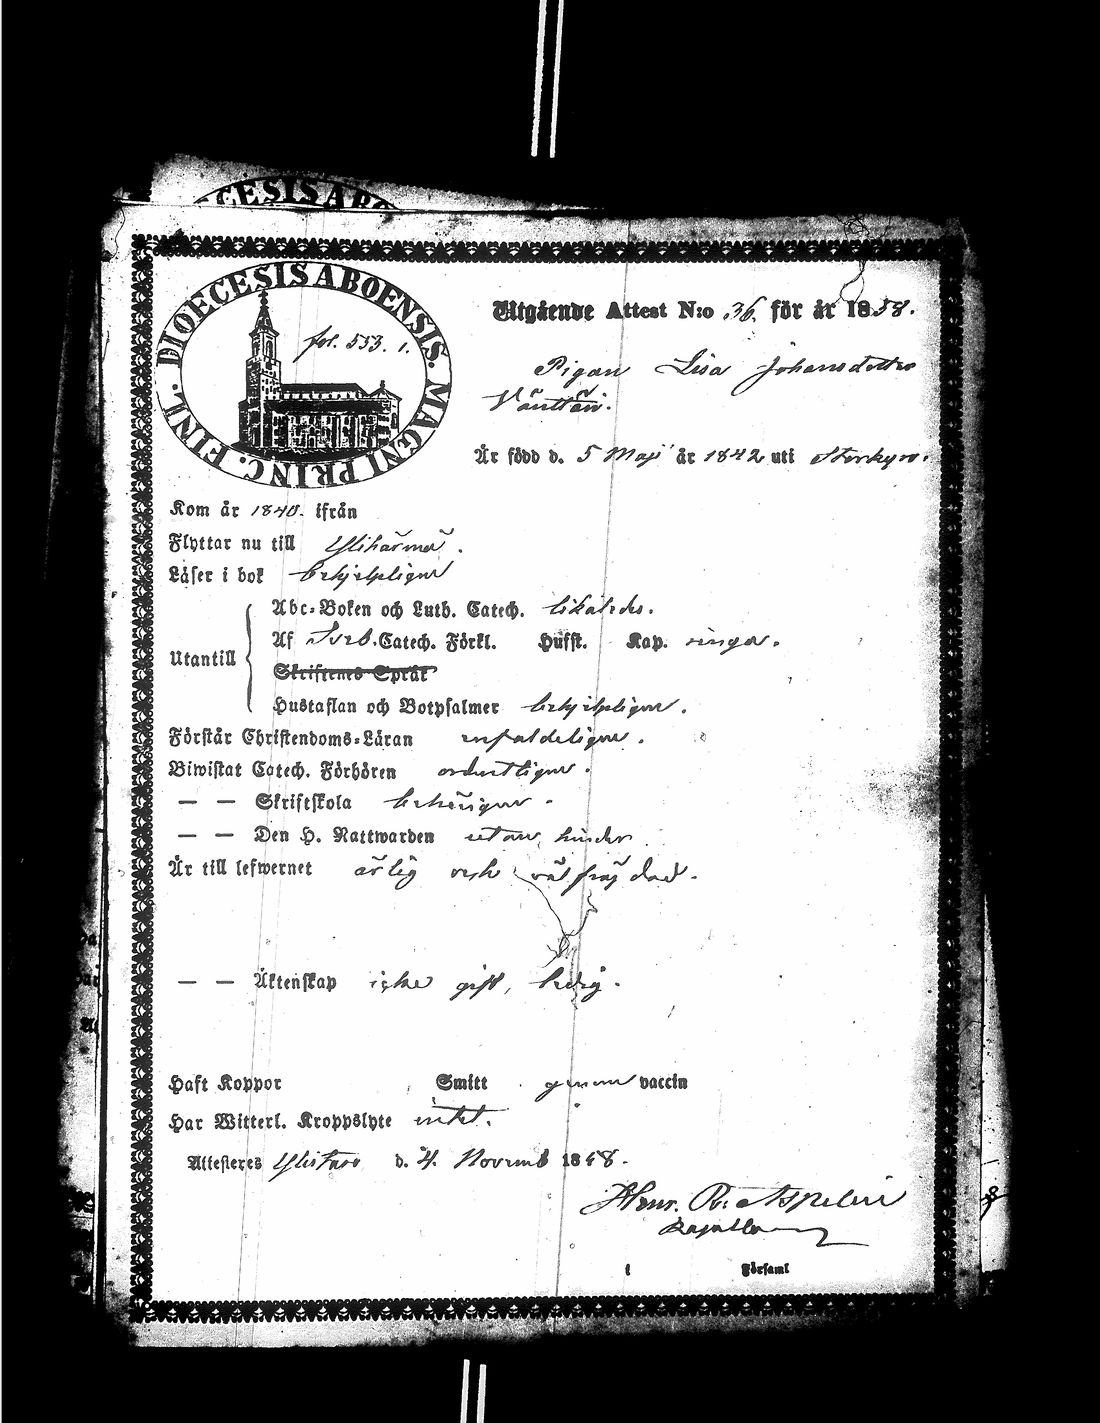 DIOECESIS ABO
DIOECESIS ABOENSIS. MAGNI PRINC. FINL.
fol. 553. 1.
Utgående Attest N:o 36. för år 1858.
Pigan Lisa Johansdotter
Är född d. 5 Maji år 1842 uti Storkyro.
Kom år 1840. ifrån
Flyttar nu till Ylihärmä.
Läser i bok behjelpligen
Abc-Boken och Luth. Catech. likaledes.
Af Sveb. Catech. Förkl. Hufst. Kap. ringa.
Utantill
Skriftenes Språk
Hustaflan och Botpsalmer behjelpligen.
Förstår Christendoms-Läran enfaldeligen.
Biwistat Catech. Förhören ordentligen.
— — Skriftskola behörigen.
— — Den H. Nattwarden utan hinder
Är till lefwernet ärlig och välfrägdad.
— — Äktenskap icke gift, ledig.
Haft Koppor Smitt genom vaccin
Har Witterl. Kroppslyte intet.
Attesteres Ylistaro d. 4. Novemb 1858.
Aspelin
i Församl